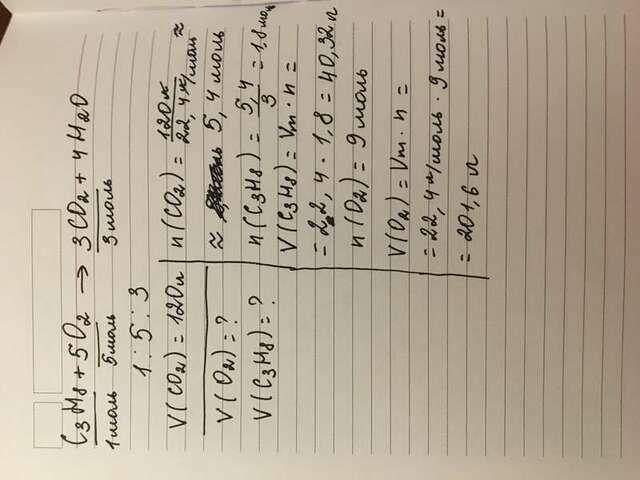 C3H8 + 5O2 → 3CO2 + 4H2O
1моль 5моль 3моль
1 : 5 : 3
V(CO2) = 120л
V(O2) = ?
V(C3H8) = ?
n(CO2) = 120л / 22,4л/моль ≈
≈ 5,4 моль
n(C3H8) = 5,4 / 3 = 1,8 моль
V(C3H8) = Vm · n =
= 22,4 · 1,8 = 40,32 л
n(O2) = 9 моль
V(O2) = Vm · n =
= 22,4 л/моль · 9 моль =
= 201,6 л